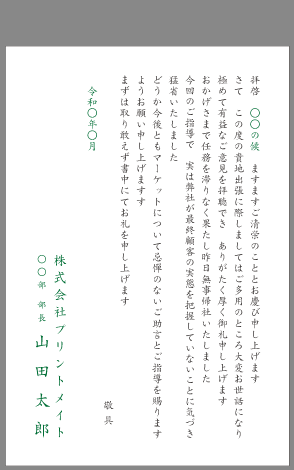 拝啓　〇〇の候　ますますご清栄のこととお慶び申し上げます
さて　この度の貴地出張に際しましてはご多用のところ大変お世話になり
極めて有益なご意見を拝聴でき　ありがたく厚く御礼申し上げます
おかげさまで任務を滞りなく果たし昨日無事帰社いたしました
今回のご指導で　実は弊社が最終顧客の実態を把握していないことに気づき
猛省いたしました
どうか今後ともマーケットについて忌憚のないご助言とご指導を賜ります
ようお願い申し上げます
まずは取り敢えず書中にてお礼を申し上げます
敬具
令和〇年〇月
株式会社プリントメイト
〇〇部　部長　山田太郎